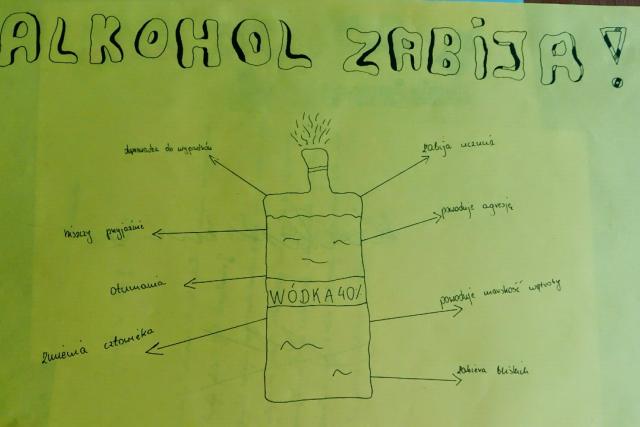 ALKOHOL ZABIJA!
doprowadza do wypadków
zabija uczucia
niszczy przyjaźnie
powoduje agresję
otumania
WÓDKA 40%
powoduje marskość wątroby
zmienia człowieka
zabiera bliskich